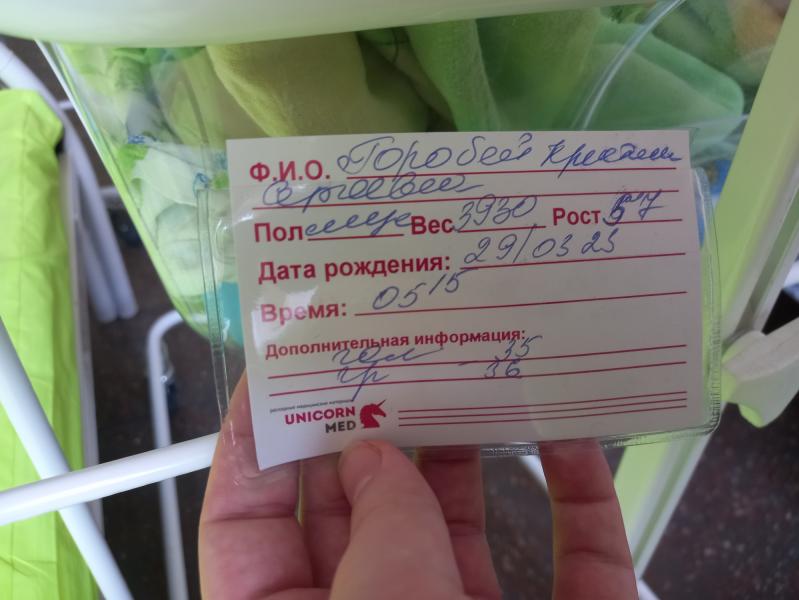 Ф.И.О. Горобей Кристиан
Сергеевич
Пол муж Вес 3930 Рост 57
Дата рождения: 29/03 23
Время: 05 15
Дополнительная информация:
гол — 35
гр 36
расходные медицинские материалы
UNICORN
MED